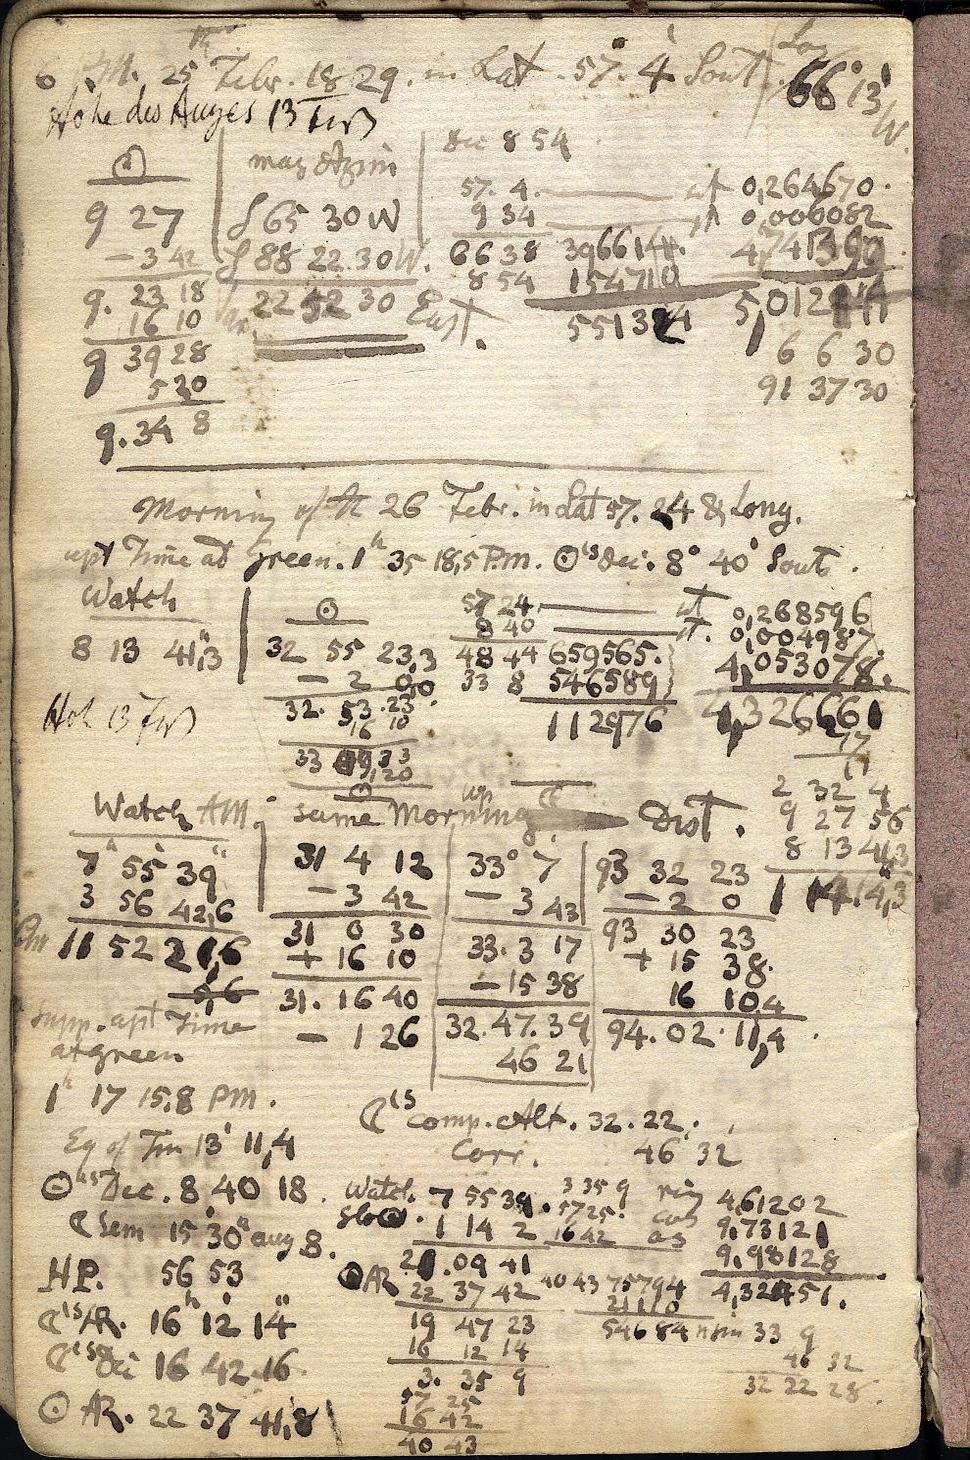 6 P.M. 25th Febr. 1829. in Lat. 57° 4' South Long 66° 13' W.
Höhe des Auges 13 Fuß
☉
9 27
- 3 42
9. 23 18
16 10
9 39 28
5 20
9. 34 8
mag Azim
S 65 30 W
S 88 22 30 W.
Var. 22 52 30 East.
Dec 8 54
57. 4.
9 34
66 38 396614
8 54 154710
551324
0,264670.
0,006082
4,741390
5,012144
6 6 30
91 37 30
Morning of the 26 Febr. in Lat 57. 24 & Long.
apt Time at Green. 1h 35 18,5 P.m. ☉'s Dec. 8° 40' South.
Watch
8 13 41,3
Höh 13 Fuß
☉
32 55 23,3
- 2 0,0
32. 53. 23.
16 10
57 24.
8 40
48 44 659565.
33 8 546589
112976
0,268596
0,004987.
4,053078.
4,326661
17
2 32 4
9 27 56
8 13 41,3
1 14 14,3
Watch AM. same Morning ☾ Dist.
7h 55' 39"
3 56 42,6
11 52 21,6
supp. apt Time
at green
1h 17 15,8 P.m.
Eq of Tim 13' 11,4
☉'s Dec. 8 40 18.
☾ Sem 15' 30" aug 8.
H.P. 56 53
☾'s AR. 16h 12' 14"
☾'s Dec 16 42 16.
☉ AR. 22 37 41,8
31 4 12
- 3 42
31 0 30
+ 16 10
31. 16 40
- 1 26
33° 7
- 3 43
33. 3 17
- 15 38
32. 47. 39
46 21
93 32 23
- 2 0
93 30 23
+ 15 38.
16 10,4
94. 02. 11,4
☾'s comp. Alt. 32. 22.
Corr. 46 32
Watch. 7 55 39.
Slow. 1 14 2
21. 09 41
☉ AR 22 37 42
19 47 23
16 12 14
3. 35 9
57 25
16 42
40 43
3 35 9 ris 4,61202
57 25. cos 9,73121
16 42 cos 9,98128
4,32451.
40 43 75794
21110
54684 n sin 33 9
46 32
32 22 28.